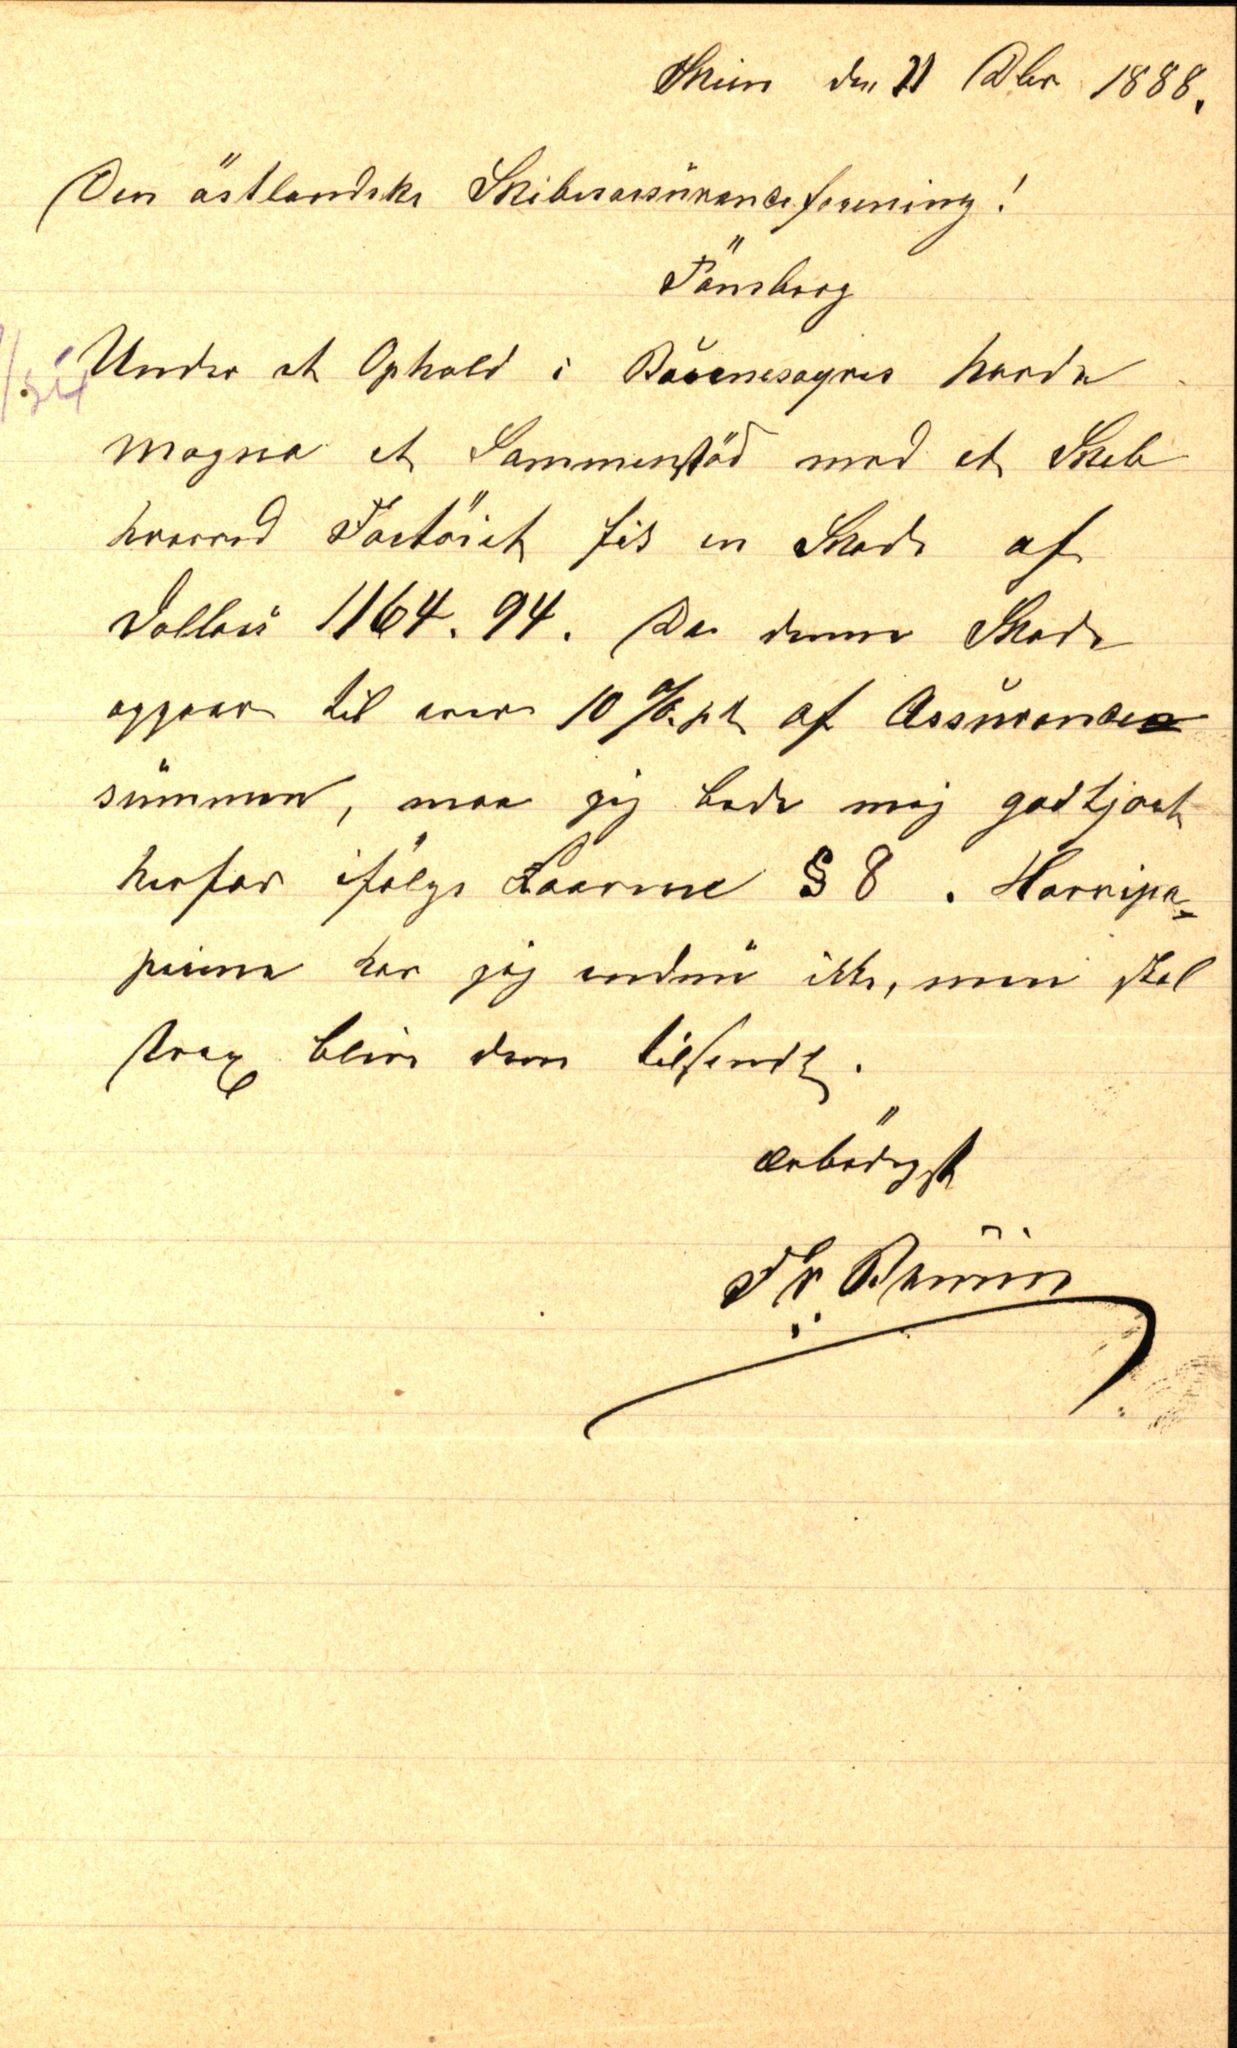 Skien den 11 Dbr 1888.
Den östlandske Skibsassuranceforening!
Tönsberg
Under et Ophold i Buenesayres havde
Magna et Sammenstöd med et Skib
hvorved Fartöiet fik en Skade af
Dollars 1164.94. Da denne Skade
opgaar til over 10 % pt af Assurance
summen, maa jeg bede mig godtjort
herfor ifölge Lovene § 8. Havripa-
pirerne har jeg endnu ikke, men skal
strax blive dem tilsendt.
ærbödigst
Fr Bruun